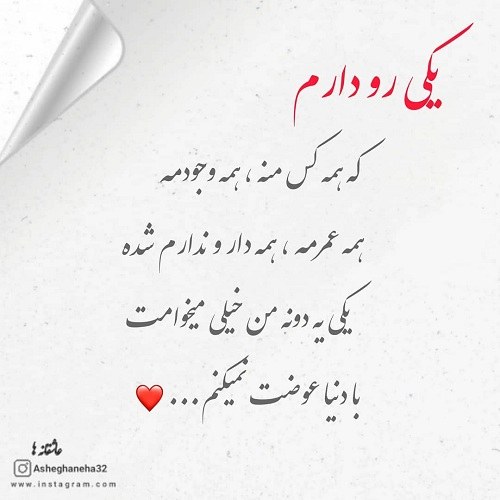 یکی رو دارم
که همه کس منه ، همه وجودمه
همه عمرمه ، همه دار و ندارم شده
یکی یه دونه من خیلی میخوامت
با دنیا عوضت نمیکنم ... ❤️
عاشقانه ها
Asheghaneha32
www.instagram.com